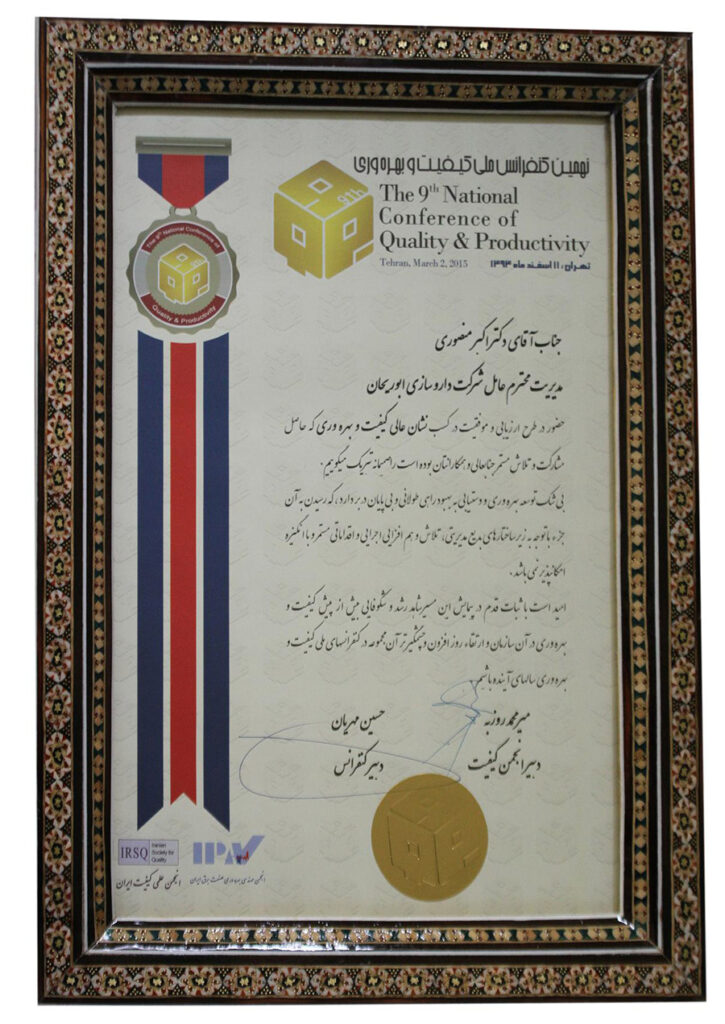 نهمین کنفرانس ملی کیفیت و بهره وری
9th
The 9th National
Conference of
Quality & Productivity
Tehran, March 2, 2015 تهران، ۱۱ اسفند ماه ۱۳۹۳
The 9th National Conference of
Quality & Productivity
جناب آقای دکتر اکبر منصوری
مدیریت محترم عامل شرکت داروسازی ابوریحان
حضور در طرح ارزیابی و موفقیت در کسب نشان عالی کیفیت و بهره وری که حاصل
مشارکت و تلاش مستمر جنابعالی و همکارانتان بوده است را صمیمانه تبریک میگوییم.
بی شک توسعه بهره وری و دستیابی به بهبود راهی طولانی و بی پایان در بر دارد، که رسیدن به آن
جزء با توجه به زیرساختارهای بدیع مدیریتی، تلاش و هم افزایی اجرایی و اقداماتی مستمر و با انگیزه
امکانپذیر نمی باشد.
امید است با ثبات قدم در پیمایش این مسیر شاهد رشد و شکوفایی بیش از پیش کیفیت و
بهره وری در آن سازمان و ارتقاء روز افزون و چشمگیرتر آن مجموعه در کنفرانسهای ملی کیفیت و
بهره وری سالهای آینده باشیم.
میرمحمد روزبه حسین مهریان
دبیر انجمن کیفیت دبیر کنفرانس
IRSQ Iranian
Society for
Quality
انجمن علمی کیفیت ایران
انجمن مهندسی بهره وری صنعت برق ایران